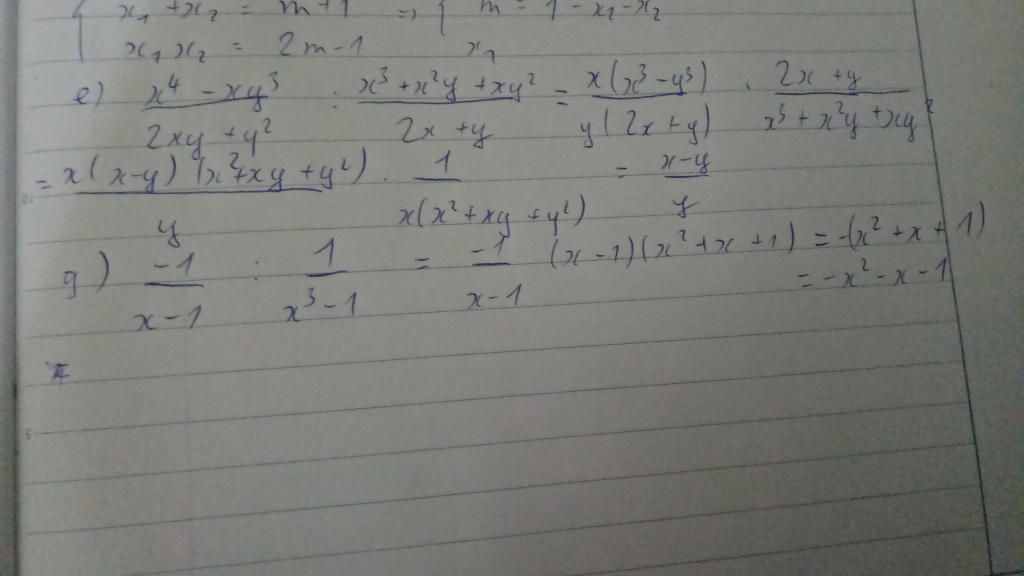 x₁ + x₂ = m + 1 => { m = 1 - x₁ - x₂
x₁ x₂ = 2m - 1 x₁
e) (x⁴ - xy³)/(2xy + y²) : (x³ + x²y + xy²)/(2x + y) = x(x³ - y³)/(y(2x + y)) . (2x + y)/(x³ + x²y + xy²)
= x(x - y)(x² + xy + y²)/y . 1/(x(x² + xy + y²)) = (x - y)/y
g) -1/(x - 1) : 1/(x³ - 1) = -1/(x - 1) (x - 1)(x² + x + 1) = -(x² + x + 1)
= -x² - x - 1